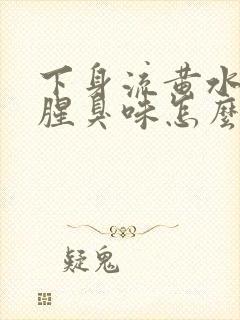 下身流黄水
腥臭味怎麽
疑鬼